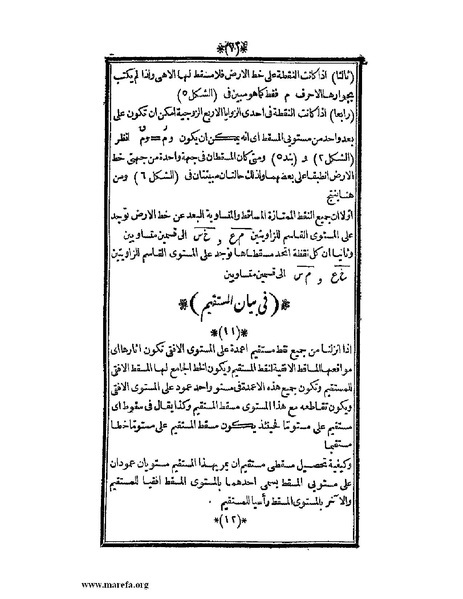 (ثالثا) اذا كانت النقطة على خط الارض فلا مسقط لها الاهى ولذا لم يكتب
بجوارها الاحرف م فقط كما هو مبين فى (الشكل ٥)
(رابعا) اذا كانت النقطة فى احدى الزوايا الاربع الزوجية امكن ان تكون على
بعد واحد من مستويى المسقط اى انه يمكن ان يكون انظر
(الشكل ٢) و (بند ٥) ومتى كان المسقطان فى جهة واحدة من جهتى خط
الارض انطبقا على بعضهما ولذلك حالتان مبينتان فى (الشكل ٦) ومن
هنا ينتج
اولا ان جميع النقط الممتازة المساقط والمتساوية البعد عن خط الارض توجد
على المستوى القاسم للزاويتين الى قسمين متساويين
وثانيا ان كل نقطة اتحد مسقطاها توجد على المستوى القاسم للزاويتين
الى قسمين متساويين
*(فى بيان المستقيم)*
*(١١)*
اذا انزلنا من جميع نقط مستقيم اعمدة على المستوى الافقى تكون اثارها اى
مواقعها المساقط الافقية لنقط المستقيم ويكون الخط الجامع لها المسقط الافقى
للمستقيم وتكون جميع هذه الاعمدة فى مستو واحد عمود على المستوى الافقى
ويكون تقاطعه مع هذا المستوى مسقط المستقيم وكذا يقال فى سقوط اى
مستقيم على مستو ما فحينئذ يكون مسقط المستقيم على مستو ما خطا
مستقيما
وكيفية تحصيل مسقطى مستقيم ان يمر بهذا المستقيم مستويان عمودان
على مستويى المسقط يسمى احدهما بالمستوى المسقط افقيا للمستقيم
والآخر بالمستوى المسقط رأسيا للمستقيم .
*(١٢)*
www.marefa.org